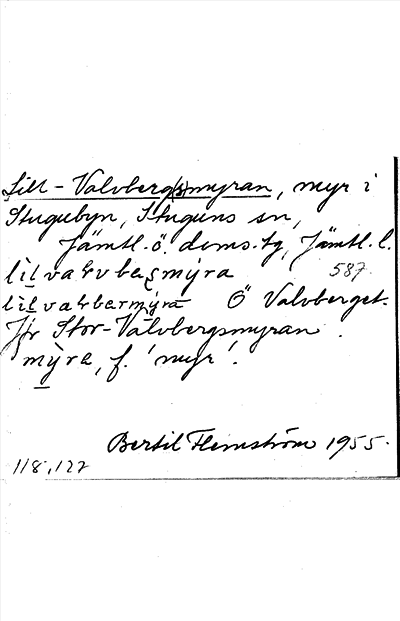 Lill-Valvberg(s)myran, myr i
Stugubyn, Stuguns sn,
Jämtl. ö. doms. tg, Jämtl. l.
lìlvaḷvbeʂmýra 587.
lìlvaḷvbermýra Ö Valvberget.
Jfr Stor-Valvbergsmyran.
mỳra, f. 'myr'.
Bertil Flemström 1955.
118,122